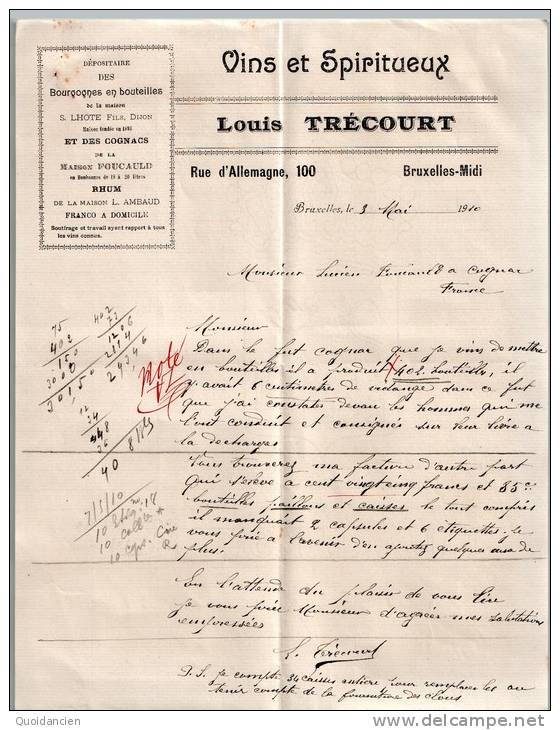 DÉPOSITAIRE
DES
Bourgognes en bouteilles
de la maison
S. LHOTE FILS, DIJON
Maison fondée en
ET DES COGNACS
DE LA
MAISON FOUCAULD
en Bonbonnes de 18 à 20 litres
RHUM
DE LA MAISON L. AMBAUD
FRANCO A DOMICILE
Soutirage et travail ayant rapport à tous
les vins connus.
Vins et Spiritueux
Louis TRÉCOURT
Rue d'Allemagne, 100 Bruxelles-Midi
Bruxelles, le 3 Mai 1910
Monsieur Lucien Foucauld a Cognac
France
Monsieur
Dans le fut cognac que je viens de mettre
en bouteilles il a produit 402 bouteilles, il
y avait 6 centimètre de vidange dans ce fut
que j'ai constater devan les hommes qui me
l'ont conduit et consignés sur leur livre a
la décharges
Vous trouverez ma facture d'autre part
qui s'élève a cent vingt cinq francs et 85 c
bouteilles paillons et caisses le tout compris
il manquait 2 capsules et 6 étiquettes, je
vous prie a l'avenir d'en ajoutez quelques une de
plus.
En l'attende du plaisir de vous lire
je vous prie Monsieur d'agréer mes salutations
empressées
L. Trécourt
P.S. je compte 34 caisses entière pour remplacer les
tenir compte de la fourniture des clous
note
75
402
150
3000
30150
402
73
1206
2814
29346
12
34
48
36
40 8
7/5/10
10
10
10
Quoidancien www.delcampe.net